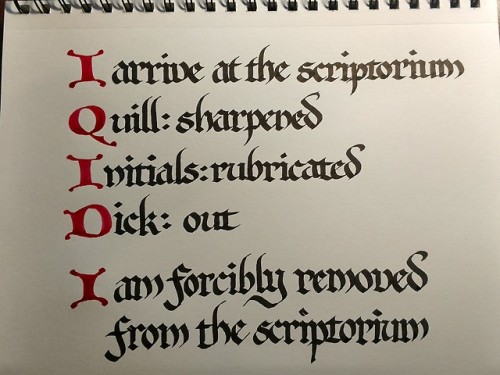 I arrive at the scriptorium
Quill: sharpened
Initials: rubricated
Dick: out
I am forcibly removed
from the scriptorium